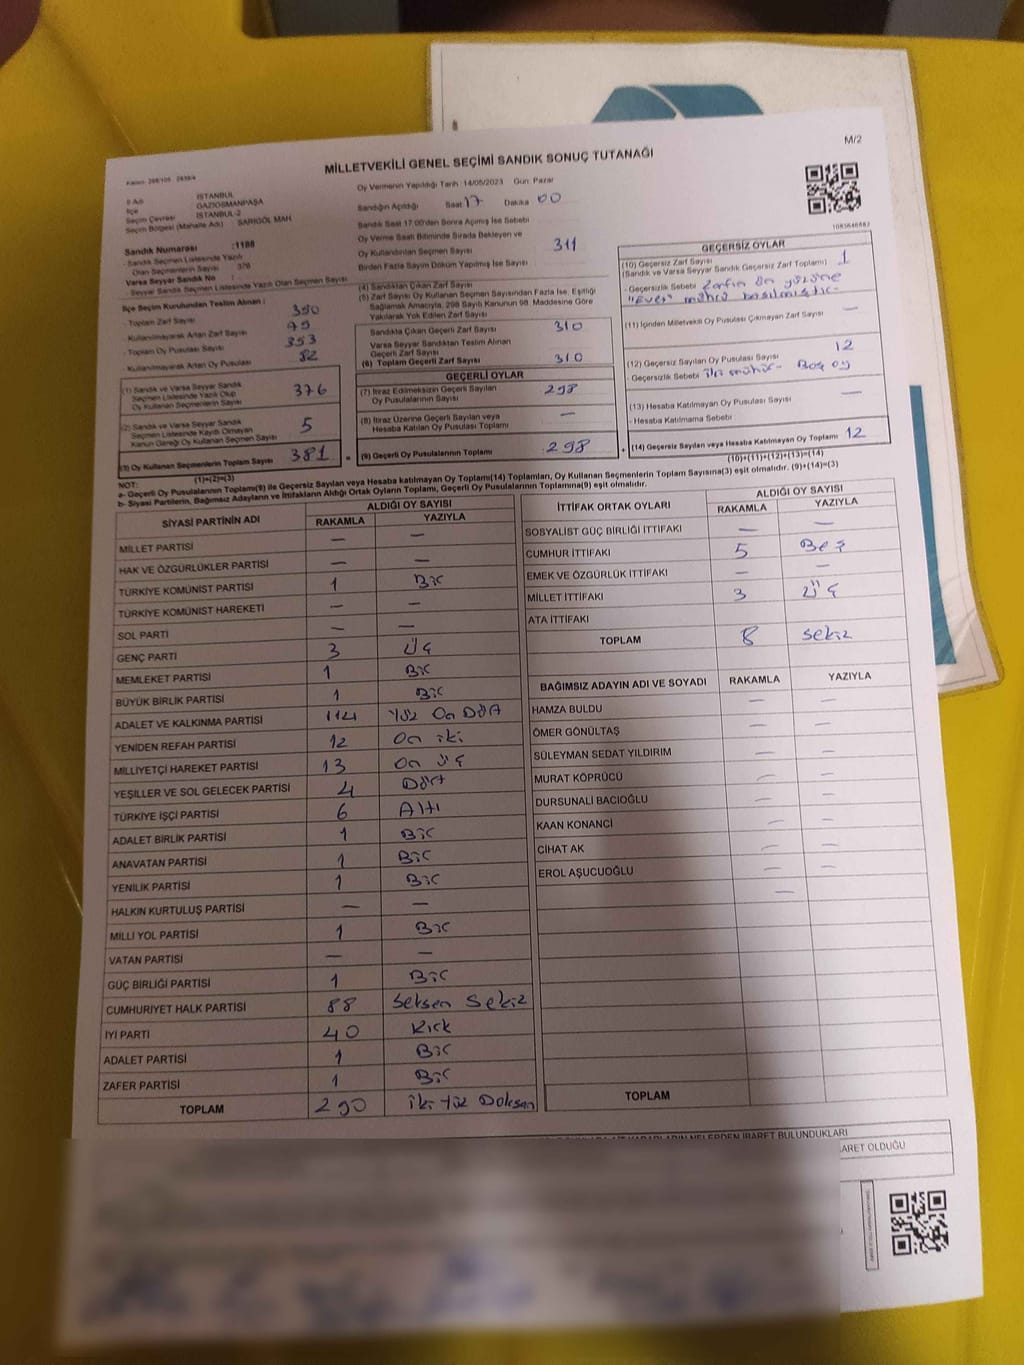 M/2
MİLLETVEKİLİ GENEL SEÇİMİ SANDIK SONUÇ TUTANAĞI
İl Adı İSTANBUL
İlçe GAZİOSMANPAŞA
Seçim Çevresi İSTANBUL-2
Seçim Bölgesi (Mahalle Adı) SARIGÖL MAH.
Sandık Numarası :1188
- Sandık Seçmen Listesinde Yazılı
Olan Seçmenlerin Sayısı : 376
Varsa Seyyar Sandık No :
- Seyyar Sandık Seçmen Listesinde Yazılı Olan Seçmen Sayısı
İlçe Seçim Kurulundan Teslim Alınan :
- Toplam Zarf Sayısı 390
- Kullanılmayarak Artan Zarf Sayısı 79
- Toplam Oy Pusulası Sayısı 393
- Kullanılmayarak Artan Oy Pusulası 82
(1) Sandık ve Varsa Seyyar Sandık
Seçmen Listesinde Yazılı Olup
Oy Kullanan Seçmenlerin Sayısı 376
(2) Sandık ve Varsa Seyyar Sandık
Seçmen Listesinde Kayıtlı Olmayan
Kanun Gereği Oy Kullanan Seçmen Sayısı 5
(3) Oy Kullanan Seçmenlerin Toplam Sayısı 381
(1)+(2)=(3)
Oy Vermenin Yapıldığı Tarih :14/05/2023 Gün: Pazar
Sandığın Açıldığı Saat 17 Dakika 00
Sandık Saat 17:00'den Sonra Açılmış İse Sebebi
Oy Verme Saati Bitiminde Sırada Bekleyen ve
Oy Kullandırılan Seçmen Sayısı
Birden Fazla Sayım Döküm Yapılmış İse Sayısı
311
(4) Sandıktan Çıkan Zarf Sayısı
(5) Zarf Sayısı Oy Kullanan Seçmen Sayısından Fazla İse, Eşitliği
Sağlamak Amacıyla, 298 Sayılı Kanunun 98. Maddesine Göre
Yakılarak Yok Edilen Zarf Sayısı
Sandıkta Çıkan Geçerli Zarf Sayısı 310
Varsa Seyyar Sandıktan Teslim Alınan
Geçerli Zarf Sayısı
(6) Toplam Geçerli Zarf Sayısı 310
GEÇERLİ OYLAR
(7) İtiraz Edilmeksizin Geçerli Sayılan
Oy Pusulasının Sayısı 298
(8) İtiraz Üzerine Geçerli Sayılan veya
Hesaba Katılan Oy Pusulası Toplamı —
(9) Geçerli Oy Pusulalarının Toplamı 298
GEÇERSİZ OYLAR
(10) Geçersiz Zarf Sayısı
(Sandık ve Varsa Seyyar Sandık Geçersiz Zarf Toplamı) 1
- Geçersizlik Sebebi Zarfın ön yüzüne
"Evet" mührü basılmıştır
(11) İçinden Milletvekili Oy Pusulası Çıkmayan Zarf Sayısı —
(12) Geçersiz Sayılan Oy Pusulası Sayısı 12
- Geçersizlik Sebebi iki mühür - Boş oy
(13) Hesaba Katılmayan Oy Pusulası Sayısı —
- Hesaba Katılmama Sebebi
(14) Geçersiz Sayılan veya Hesaba Katılmayan Oy Toplamı 12
(10)+(11)+(12)+(13)=(14)
NOT:
a- Geçerli Oy Pusulalarının Toplamı(9) ile Geçersiz Sayılan veya Hesaba katılmayan Oy Toplamı(14) Toplamları, Oy Kullanan Seçmenlerin Toplam Sayısına(3) eşit olmalıdır. (9)+(14)=(3)
b- Siyasi Partilerin, Bağımsız Adayların ve İttifakların Aldığı Ortak Oyların Toplamı, Geçerli Oy Pusulalarının Toplamına(9) eşit olmalıdır.
SİYASİ PARTİNİN ADI ALDIĞI OY SAYISI
RAKAMLA YAZIYLA
MİLLET PARTİSİ — —
HAK VE ÖZGÜRLÜKLER PARTİSİ — —
TÜRKİYE KOMÜNİST PARTİSİ 1 Bir
TÜRKİYE KOMÜNİST HAREKETİ — —
SOL PARTİ — —
GENÇ PARTİ 3 Üç
MEMLEKET PARTİSİ 1 Bir
BÜYÜK BİRLİK PARTİSİ 1 Bir
ADALET VE KALKINMA PARTİSİ 114 Yüz On Dört
YENİDEN REFAH PARTİSİ 12 On iki
MİLLİYETÇİ HAREKET PARTİSİ 13 On üç
YEŞİLLER VE SOL GELECEK PARTİSİ 4 Dört
TÜRKİYE İŞÇİ PARTİSİ 6 Altı
ADALET BİRLİK PARTİSİ 1 Bir
ANAVATAN PARTİSİ 1 Bir
YENİLİK PARTİSİ 1 Bir
HALKIN KURTULUŞ PARTİSİ — —
MİLLİ YOL PARTİSİ 1 Bir
VATAN PARTİSİ — —
GÜÇ BİRLİĞİ PARTİSİ 1 Bir
CUMHURİYET HALK PARTİSİ 88 Seksen Sekiz
İYİ PARTİ 40 Kırk
ADALET PARTİSİ 1 Bir
ZAFER PARTİSİ 1 Bir
TOPLAM 290 iki Yüz Doksan
İTTİFAK ORTAK OYLARI ALDIĞI OY SAYISI
RAKAMLA YAZIYLA
SOSYALİST GÜÇ BİRLİĞİ İTTİFAKI — —
CUMHUR İTTİFAKI 5 Beş
EMEK VE ÖZGÜRLÜK İTTİFAKI — —
MİLLET İTTİFAKI 3 Üç
ATA İTTİFAKI
TOPLAM 8 sekiz
BAĞIMSIZ ADAYIN ADI VE SOYADI RAKAMLA YAZIYLA
HAMZA BULDU — —
ÖMER GÖNÜLTAŞ — —
SÜLEYMAN SEDAT YILDIRIM — —
MURAT KÖPRÜCÜ — —
DURSUNALİ BACIOĞLU — —
KAAN KONANCİ — —
CİHAT AK — —
EROL AŞUCUOĞLU — —
—
TOPLAM
NELERDEN İBARET BULUNDUKLARI
ARET OLDUĞU